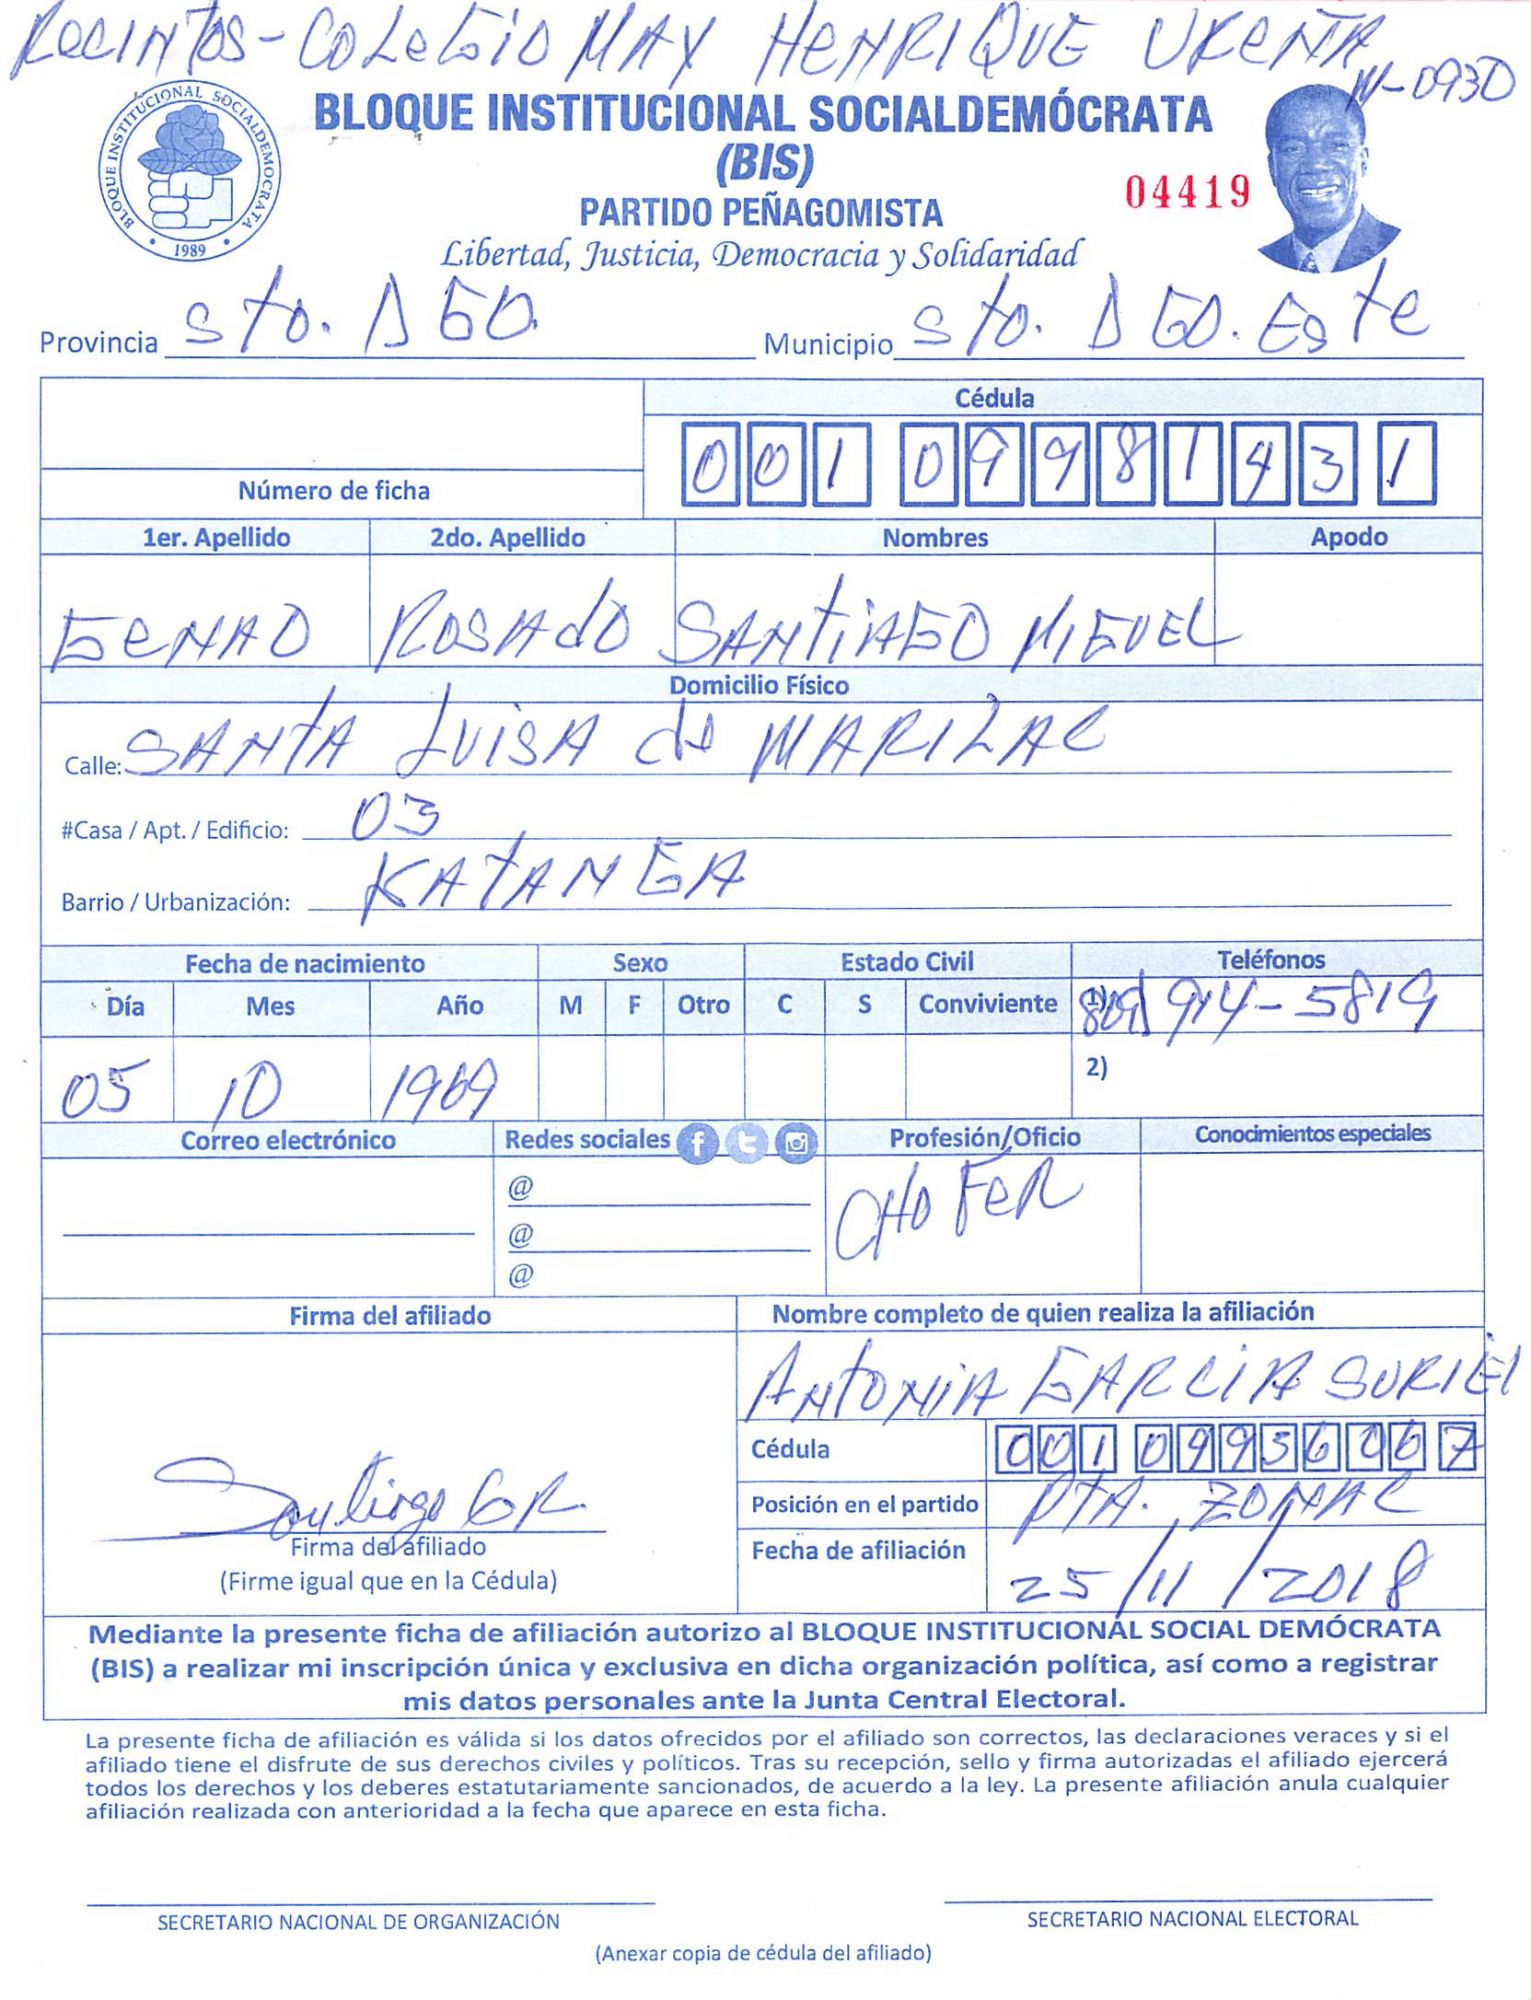 Recintos - Colegio Max Henrique Ureña
N-0930
BLOQUE INSTITUCIONAL SOCIALDEMOCRATA
1989
BLOQUE INSTITUCIONAL SOCIALDEMÓCRATA
(BIS)
PARTIDO PEÑAGOMISTA
04419
Libertad, Justicia, Democracia y Solidaridad
Provincia Sto. DGO. Municipio Sto. DGO. Este
Cédula
001 0998143 1
Número de ficha
1er. Apellido 2do. Apellido Nombres Apodo
GENAO ROSADO SANTIAGO MIGUEL
Domicilio Físico
Calle: SANTA LUISA de MARILAC
#Casa / Apt. / Edificio: 03
Barrio / Urbanización: KATANGA
Fecha de nacimiento Sexo Estado Civil Teléfonos
Día Mes Año M F Otro C S Conviviente 1) 809 914-5819
05 10 1969 2)
Correo electrónico Redes sociales Profesión/Oficio Conocimientos especiales
@ CHOFER
@
@
Firma del afiliado Nombre completo de quien realiza la afiliación
ANTONIA GARCIA SURIEl
Cédula 001 0995606 7
Santiago GR
Posición en el partido PTA. ZONAL
Firma del afiliado
(Firme igual que en la Cédula)
Fecha de afiliación 25/11/2018
Mediante la presente ficha de afiliación autorizo al BLOQUE INSTITUCIONAL SOCIAL DEMÓCRATA
(BIS) a realizar mi inscripción única y exclusiva en dicha organización política, así como a registrar
mis datos personales ante la Junta Central Electoral.
La presente ficha de afiliación es válida si los datos ofrecidos por el afiliado son correctos, las declaraciones veraces y si el
afiliado tiene el disfrute de sus derechos civiles y políticos. Tras su recepción, sello y firma autorizadas el afiliado ejercerá
todos los derechos y los deberes estatutariamente sancionados, de acuerdo a la ley. La presente afiliación anula cualquier
afiliación realizada con anterioridad a la fecha que aparece en esta ficha.
SECRETARIO NACIONAL DE ORGANIZACIÓN SECRETARIO NACIONAL ELECTORAL
(Anexar copia de cédula del afiliado)